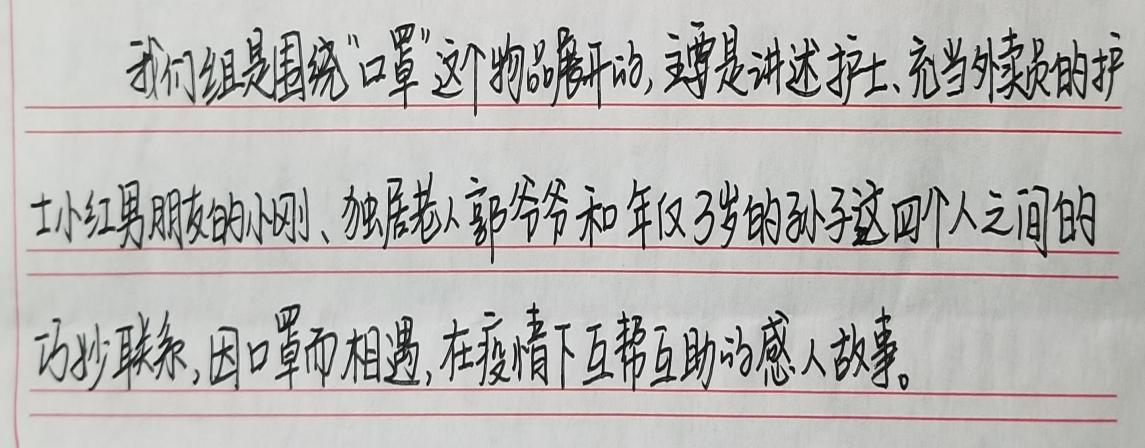 我们组是围绕“口罩”这个物品展开的,主要是讲述护士、充当外卖员的护
士小红男朋友的小刚、独居老人郭爷爷和年仅3岁的孙子这四个人之间的
巧妙联系,因口罩而相遇,在疫情下互帮互助的感人故事。